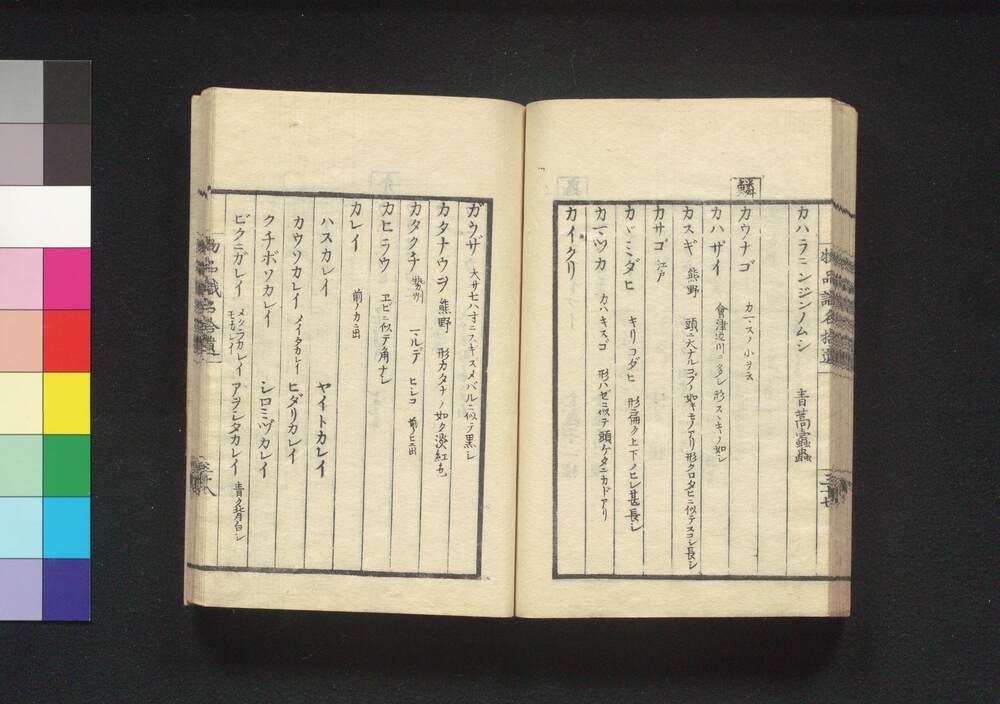 カハラニンジンノムシ 青蒿蠧蟲
鱗
カウナゴ カマスノ小ヲ云
カハザイ 會津辺川ニ多シ形スヽキノ如シ
カスギ 熊野 頭ニ大ナルコブノ如キモノアリ形クロダヒニ似テスコシ長シ
カサゴ 江戸
カヾミダヒ キリコダヒ 形扁ク上下ノヒレ甚長シ
カマツカ カハキスゴ 形ハゼニ似テ頭ケタニカドアリ
カイグリ
ガウザ 大サ七八寸ニスギスメバルニ似テ黒シ
カタナウヲ 熊野 形カタナノ如ク淡紅色
カタクチ 勢州 マルデ ヒシコ 前ノヒニ出
カヒラウ ヱビニ似テ角ナシ
カレイ 前ノカニ出
ハスカレイ ヤイトカレイ
カウソカレイ メイタカレイ ヒダリカレイ
クチボソカレイ シロミヅカレイ
ビクニガレイ メクラカレイ モカレイ アヲシタカレイ 青ク背白シ
物品識名拾遺
三十七